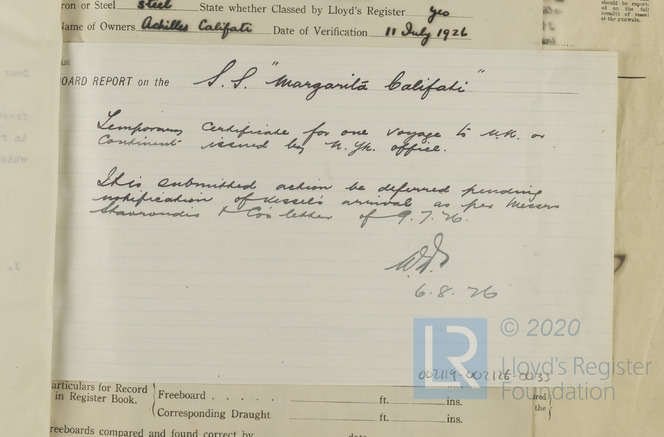 ron or Steel steel State whether Classed by Lloyd's Register yes
Name of Owners Achilles Califati Date of Verification 11 July 1926
OARD REPORT on the S.S. "Margarita Califati"
Temporary Certificate for one voyage to U.K. or
Continent issued by N.Yk. office.
It is submitted action be deferred pending
notification of vessel's arrival as per Messrs
& Co's letter of 9.7.26.
6.8.26
LR
© 2020
Lloyd's Register
Foundation
002119-002126-0033
articulars for Record
in Register Book.
Freeboard . . . . . ft. ins.
Corresponding Draught ft. ins.
reeboards compared and found correct by date
should be report-
ed on the full
breadth of vessel
at the gunwale.
the